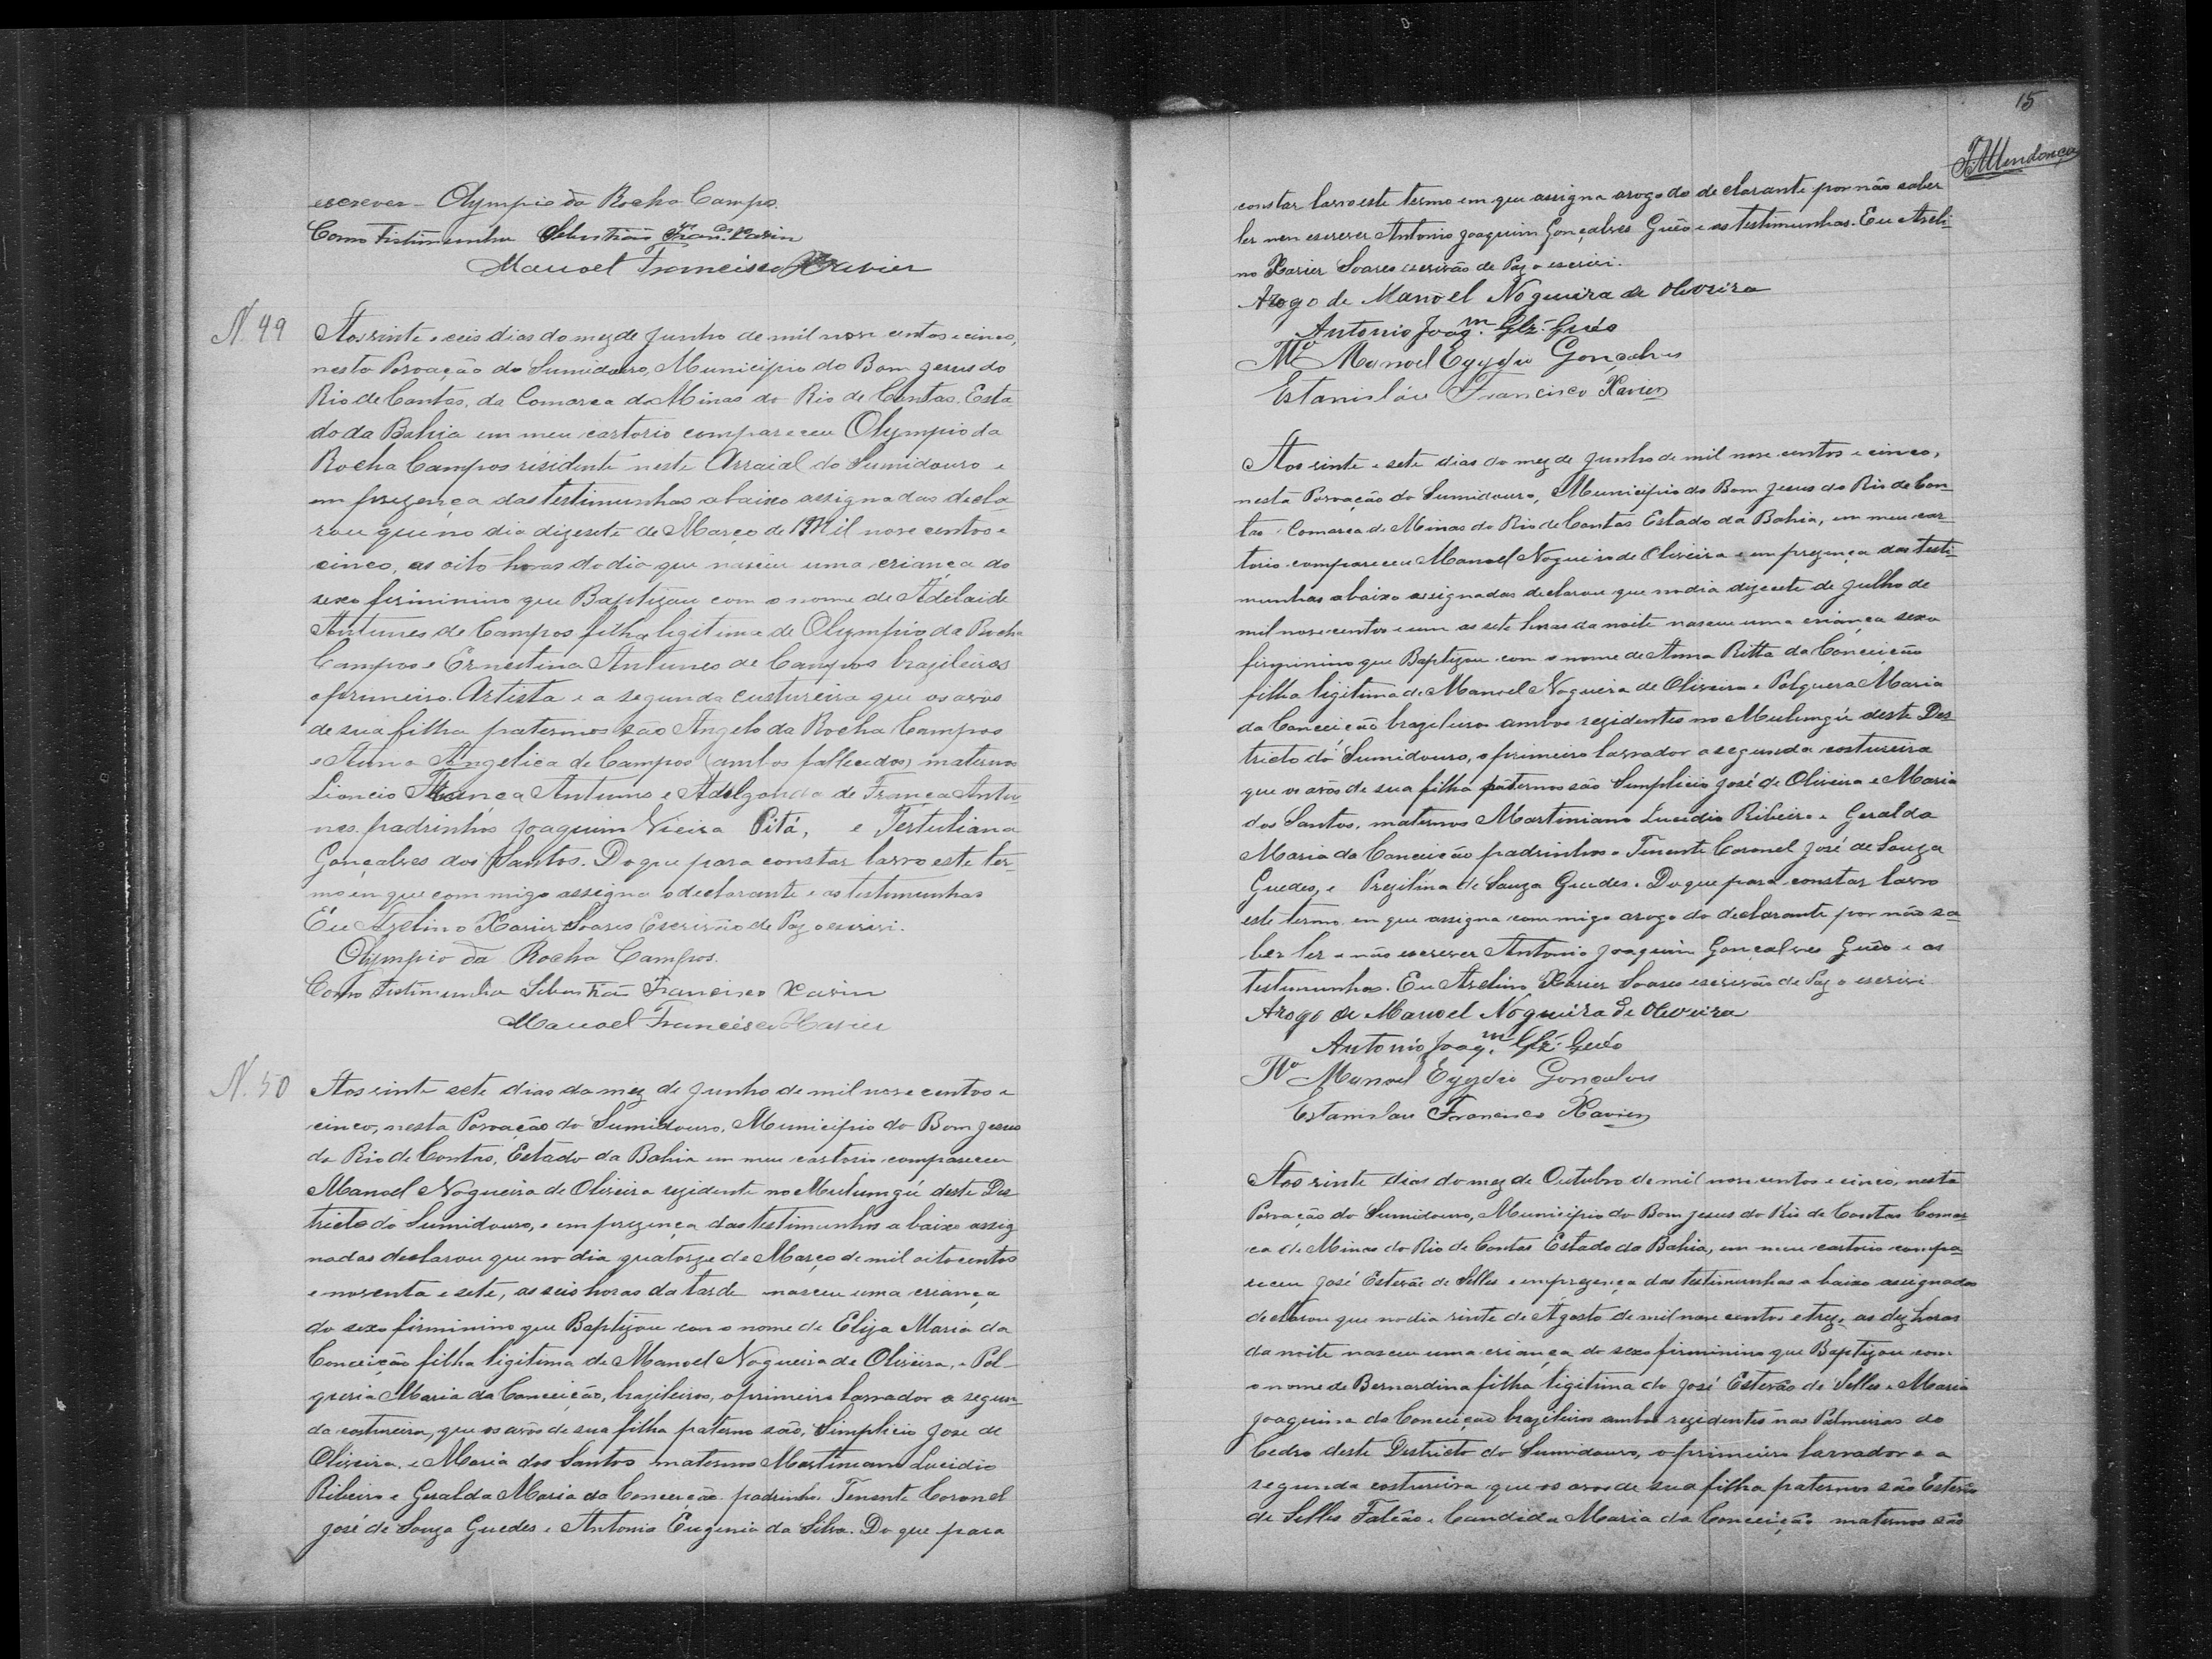 escrever - Olympio da Rocha Campos.
Como Tistimunha Sebastião Fran.co Xavier
Manoel Francisco Xavier
N. 49
Aos vinte e ceis dias do mez de Junho de mil nove centos e cinco,
nesta Povoação do Sumidouro, Municipio do Bom Jesus do
Rio de Contas, da Comarca de Minas do Rio de Contas. Esta
do da Bahia em meu cartorio compareceu Olympio da
Rocha Campos risidente neste Arraial do Sumidouro e
em prezença das testimunhas abaixo assignadas decla
rou que no dia dizesete de Março de Mil nove centos e
cinco, as oito horas do dia que nasceu uma criança do
sexo firminino que Baptizou com o nome de Adelaide
Antunes de Campos filha ligitima de Olympio da Rocha
Campos e Ernestina Antunes de Campos brazileiros
o primeiro Artista e a segunda custureira que os avós
de sua filha paternos são Angelo da Rocha Campos
e Anna Angelica de Campos (ambos fallecidos) maternos
Lioncio França Antunes e Adelgonda de França Antu
nes. padrinhos Joaquim Vieira Pitá, e Tertuliana
Gonçalves dos Santos. Do que para constar lavro este ter-
mo em que com migo assigna o declarante e as testimunhas
Eu Avelino Xavier Soares Escrivão de Paz o escrivi.
Olympio da Rocha Campos.
Como Testimunha Sebastião Francisco Xavier
Manoel Francisco Xavier
N. 50
Aos vinte sete dias do mez de Junho de mil nove centos e
cinco, nesta Povoação do Sumidouro, Municipio do Bom Jesus
do Rio de Contas, Estado da Bahia em meu cartorio compareceu
Manoel Nogueira de Oliveira rezidente no Mulumgú deste Des
tricto do Sumidouro, e em prezença das testimunhas a baixo assig
nadas declarou que no dia quatorze de Março de mil oitocentos
e noventa e sete, as seis horas da tarde nasceu uma criança
do sexo firminino que Baptizou con o nome de Eliza Maria da
Conceição filha ligitima de Manoel Nogueira de Oliveira, e Pol-
queria Maria da Conceição, brazileiros, o primeiro lavrador a segun-
da costureira, que os avós de sua filha paterno são, Simplicio Jose de
Oliveira, e Maria dos Santos maternos Martiniano Lucidio
Ribeiro e Geralda Maria da Conceição padrinhos Tenente Coronel
José de Souza Guedes e Antonia Eugenia da Silva. Do que para
15
J. A. Mendonça
constar lavro este termo em que assigna arogo do declarante por não saber
ler nen escrever Antonio Joaquim Gonçalves Guêo e as testimunhas. Eu Aveli-
no Xavier Soares escrivão de Paz o escrivi.
Arogo de Manoel Nogueira de Oliveira
Antonio Joaq.m Glz. Guêo
Manoel Egydio Gonçalves
Estanisláu Francisco Xavier
Aos vinte e sete dias do mez de Junho de mil nove centos e cinco,
nesta Povoação do Sumidouro, Municipio do Bom Jesus do Rio de Con-
tas Comarca de Minas do Rio de Contas Estado da Bahia, em meu car-
torio compareceu Manoel Nogueira de Oliveira e em prezença das testi-
munhas abaixo assignadas declarou que no dia dizesete de Julho de
mil nove centos e um as sete horas da noite nasceu uma criança sexo
firminino que Baptizou com o nome de Anna Ritta da Conceição
filha ligitima de Manoel Nogueira de Oliveira e Polquera Maria
da Conceição brazileiros ambos rezidentes no Mulumgú deste Des
tricto do Sumidouro, o primeiro lavrador a segunda costureira
que os avós de sua filha paternos são Simplicio José de Oliveira e Maria
dos Santos, maternos Martiniano Lucidio Ribeiro e Geralda
Maria da Conceição padrinhos o Tenente Coronel José de Souza
Guedes, e Prezilina de Souza Guedes. Do que para constar lavro
este termo en que assigna com migo arogo do declarante por não sa-
ber ler e não escrever Antonio Joaquim Gonçalves Guêo e as
testimunhas. Eu Avelino Xavier Soares escrivão de Paz o escrivi
Arogo de Manoel Nogueira de Oliveira
Antonio Joaq.m Glz. Guêo
Manoel Egydio Gonçalves
Estanislau Francisco Xavier
Aos vinte dias do mez de Outubro de mil nove centos e cinco, nesta
Povoação do Sumidouro, Municipio do Bom Jesus do Rio de Contas Comar-
ca de Minas do Rio de Contas Estado da Bahia, em meu cartorio compa-
receu José Estevão de Selles e emprezença das testimunhas a baixo assignadas
declarou que no dia vinte de Agosto de mil nove centos e trez, as dez horas
da noite nasceu uma criança do sexo firminino que Baptizou com
o nome de Bernardina filha ligitima de José Estevão de Selles e Maria
Joaquina da Conceição brazileiros ambos rezidentes nas Palmeiras do
Cedro deste Destricto do Sumidouro, o primeiro lavrador e a
segunda costureira que os avos de sua filha paternos são Estevão
de Selles Falcão e Candida Maria da Conceição maternos são